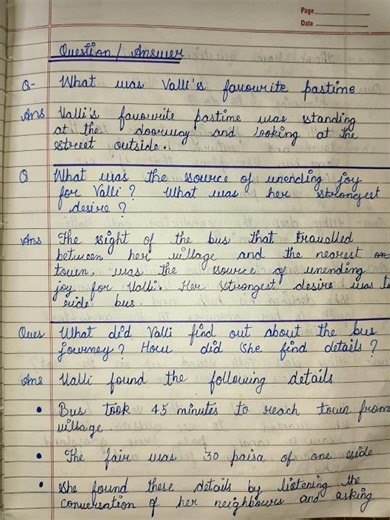 Page
Date
Question / Answer
Q- What was Valli's favourite pastime
Ans Valli's favourite pastime was standing
at the doorway and looking at the
street outside.
Q What was the source of unending joy
for Valli? What was her strongest
desire?
Ans The sight of the bus that travelled
between her village and the nearest
town. was the source of unending
joy for Valli. Her strongest desire was to
ride bus.
Ques What did Valli find out about the bus
journey? How did She find details?
Ans Valli found the following details
• Bus took 45 minutes to reach town from
village
• The fair was 30 paisa of one side
• She found these details by listening the
conversation of her neighbours and asking